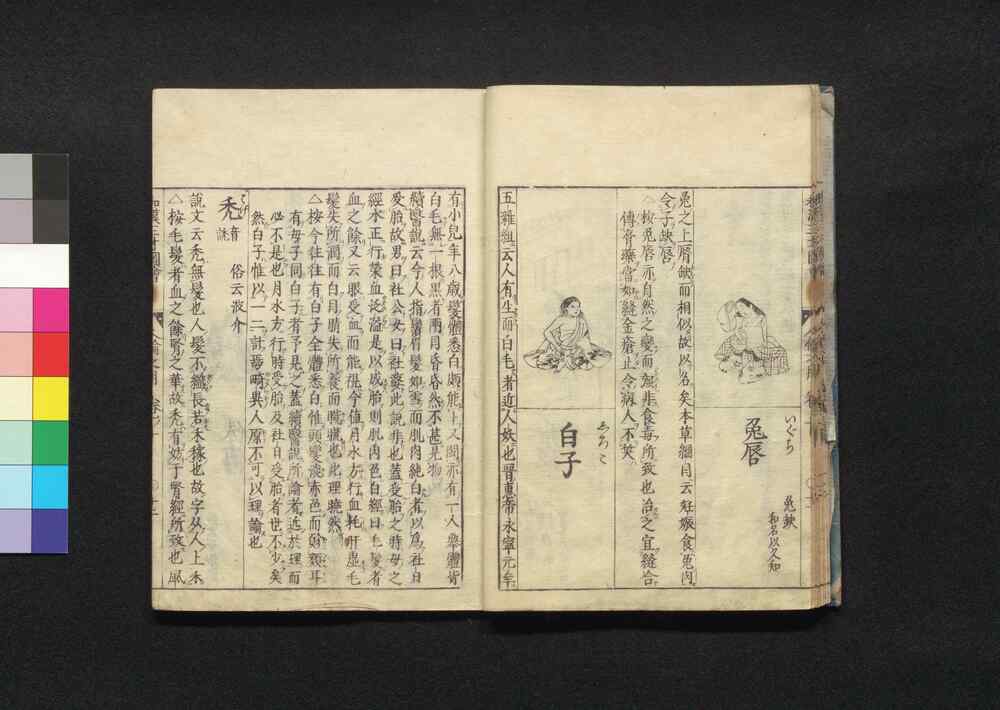 いぐち
兎唇
兎缺
和名以久知
兎之上唇缺而相似故以名矣本草綱目云妊娠食兎肉
令子缺唇
△按兎唇亦自然之變而無非食毒所致也治之宜縫合
傅膏藥當如縫金瘡止令病人不笑
しらこ
白子
五雜組云人有生而白毛者近人妖也晉惠帝永寧元年
有小兒年八歳髮體悉白頗能卜又聞亦有一人擧體皆
白毛無一根黒者兩目昏昏然不甚見物
續醫說云今人指鬚眉髮如雪而肌肉純白者以爲社日
受胎故男曰社公女曰社婆此說非也蓋受胎之時母之
經水正行榮血泛溢是以成胎則肌肉色白經曰毛髮者
血之餘又云眼受血而能視今値月水方行血耗肝虛毛
髮失所潤而白目睛失所養而
此理曉然
△按今往往有白子全體悉白惟頭髮淡赤色而
有母子同白子者予見之蓋續醫說所論者近於理而
必不是也月水方行時受胎及社日受胎者世不少矣
然白子惟以一二計焉畸異人原不可以理論也
はげ
禿
音
俗云波介
說文云禿無髮也人髮不纖長若禾稼也故字从人上禾
△按毛髮者血之餘腎之華故禿有妨于腎經所致也